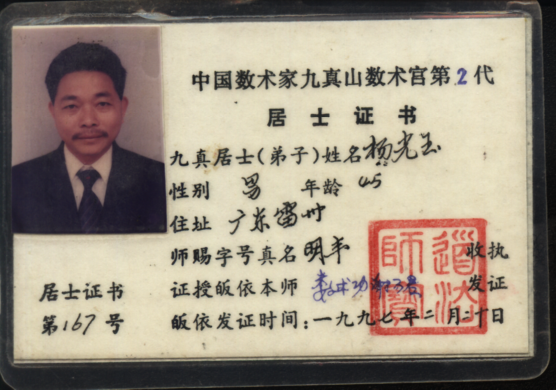 中国数术家九真山数术宫第2代
居士证书
九真居士(弟子)姓名杨光玉
性别 男 年龄 45
住址 广东雷州
师赐字号真名 明丰 收执
证授皈依本师 发证
皈依发证时间:一九九七年二月二十日
居士证书
第167号
道法師寶